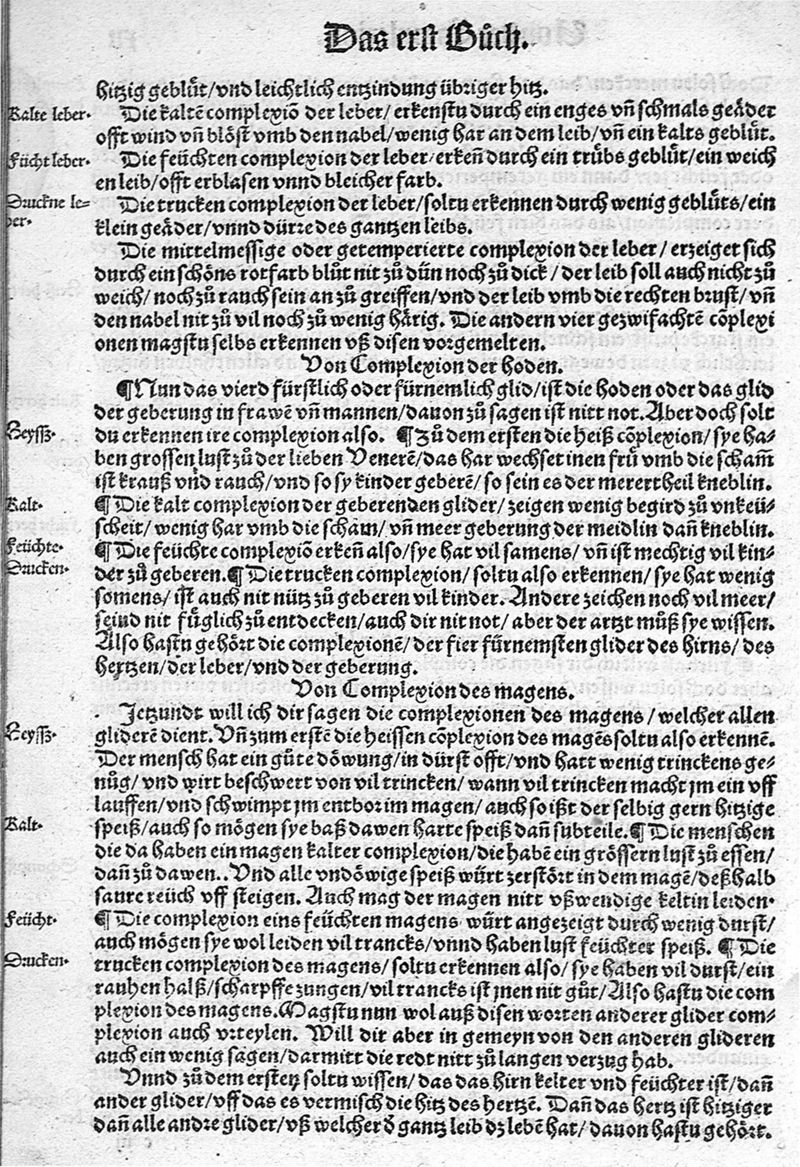 Das erst Bůch.
hitzig geblůt/vnd leichtlich entzindung übriger hitz.
Kalte leber.
Die kaltē complexiō der leber/erkenstu durch ein enges vñ schmals geäder
offt wind vñ blöst vmb den nabel/wenig har an dem leib/vñ ein kalts geblůt.
Fücht leber.
Die feüchten complexion der leber/erkeñ durch ein trůbs geblůt/ein weich
en leib/offt erblasen vnnd bleicher farb.
Druckne le=
ber.
Die trucken complexion der leber/soltu erkennen durch wenig geblůts/ein
klein geäder/vnnd dürre des gantzen leibs.
Die mittelmessige oder getemperierte complexion der leber/erzeiget sich
durch ein schöns rotfarb blůt nit zů düñ noch zů dick/der leib soll auch nicht zů
weich/noch zů rauch sein an zů greiffen/vnd der leib vmb die rechten brust/vñ
den nabel nit zů vil noch zů wenig härig. Die andern vier gezwifachtē cōplexi
onen magstu selbs erkennen vß disen vorgemelten.
Von Complexion der hoden.
¶Nun das vierd fürstlich oder fürnemlich glid/ist die hoden oder das glid
der geberung in frawē vñ mannen/dauon zů sagen ist nitt not. Aber doch solt
Heyssz.
du erkennen ire complexion also. ¶Zů dem ersten die heiß cōplexion/sye ha=
ben grossen lust zů der lieben Venerē/das har wechset inen frů vmb die scham̄
ist krauß vnd rauch/vnd so sy kinder geberē/so sein es der merertheil kneblin.
Kalt.
¶Die kalt complexion der geberenden glider/zeigen wenig begird zů vnkeü=
scheit/wenig har vmb die scham/vñ meer geberung der meidlin dañ kneblin.
Feüchte.
¶Die feüchte complexiō erkeñ also/sye hat vil samens/vñ ist mechtig vil kin=
Drucken.
der zů geberen.¶Die trucken complexion/soltu also erkennen/sye hat wenig
somens/ist auch nit nütz zů geberen vil kinder. Andere zeichen noch vil meer/
seind nit fůglich zů entdecken/auch dir nit not/aber der artzt můß sye wissen.
Also hastu gehört die complexionē/der fier fürnemsten glider des hirns/des
hertzen/der leber/vnd der geberung.
Von Complexion des magens.
Jetzundt will ich dir sagen die complexionen des magens/welcher allen
Heyssz.
gliderē dient. Vñ zum erstē die heissen cōplexion des magēs soltu also erkennē.
Der mensch hat ein gůte döwung/in dürst offt/vnd hatt wenig trinckens ge=
nůg/vnd wirt beschwert von vil trincken/wann vil trincken macht jm ein vff
lauffen/vnd schwimpt jm entbor im magen/auch so ißt der selbig gern hitzige
Kalt.
speiß/auch so mögen sye baß dawen harte speiß dañ subteile.¶Die menschen
die da haben ein magen kalter complexion/die habē ein grössern lust zů essen/
dañ zů dawen.. Vnd alle vndöwige speiß würt zerstört in dem magē/deßhalb
saure reüch vff steigen. Auch mag der magen nitt vßwendige keltin leiden.
Feücht.
¶Die complexion eins feüchten magens würt angezeigt durch wenig durst/
auch mögen sye wol leiden vil trancks/vnnd haben lust feüchter speiß. ¶Die
Drucken.
trucken complexion des magens/soltu erkennen also/sye haben vil durst/ein
rauhen halß/scharpffe zungen/vil trancks ist jnen nit gůt/Also hastu die com
plexion des magens. Magstu nun wol auß disen worten anderer glider com=
plexion auch vrteylen. Will dir aber in gemeyn von den anderen glideren
auch ein wenig sagen/darmitt die redt nitt zů langen verzug hab.
Vnnd zů dem ersten soltu wissen/das das hirn kelter vnd feüchter ist/dañ
ander glider/vff das es vermisch die hitz des hertzē. Dañ das hertz ist hitziger
dañ alle andre glider/vß welcher d̄ gantz leib dz lebē hat/dauon hastu gehört.